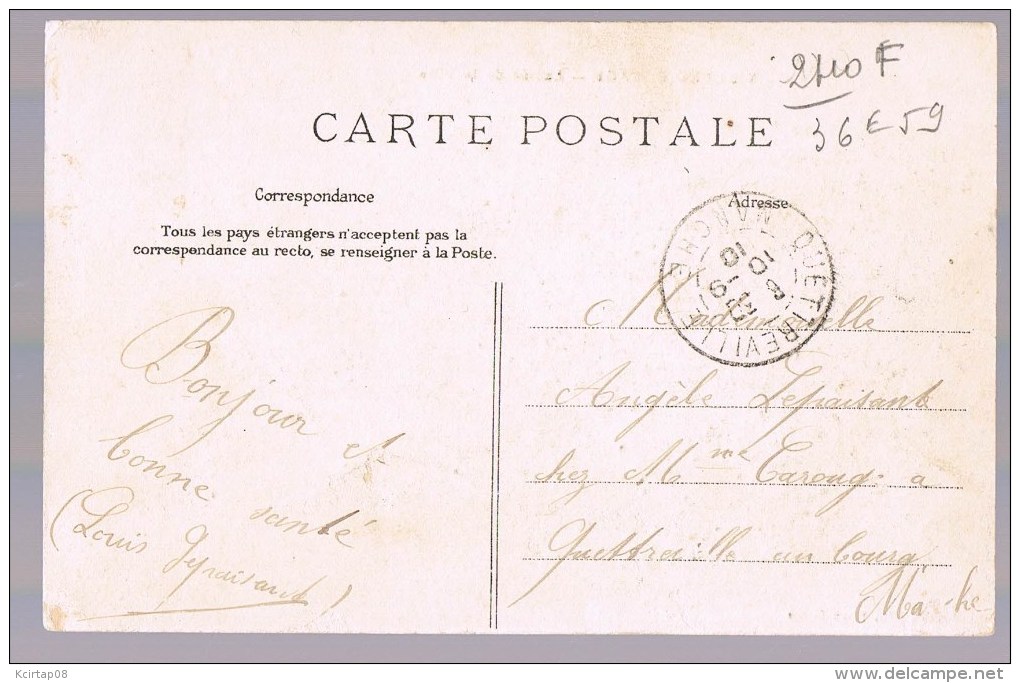 2110 F
CARTE POSTALE
36 € 59
Correspondance
Adresse
Tous les pays étrangers n'acceptent pas la
correspondance au recto, se renseigner à la Poste.
QUETTREVILLE
MANCHE
Bonjour et
bonne santé
(Louis Lepaisant)
Mademoiselle
Angèle Lepaisant
chez Mme a
Quettreville au bourg
Manche
Kcirtap08
www.delcampe.net